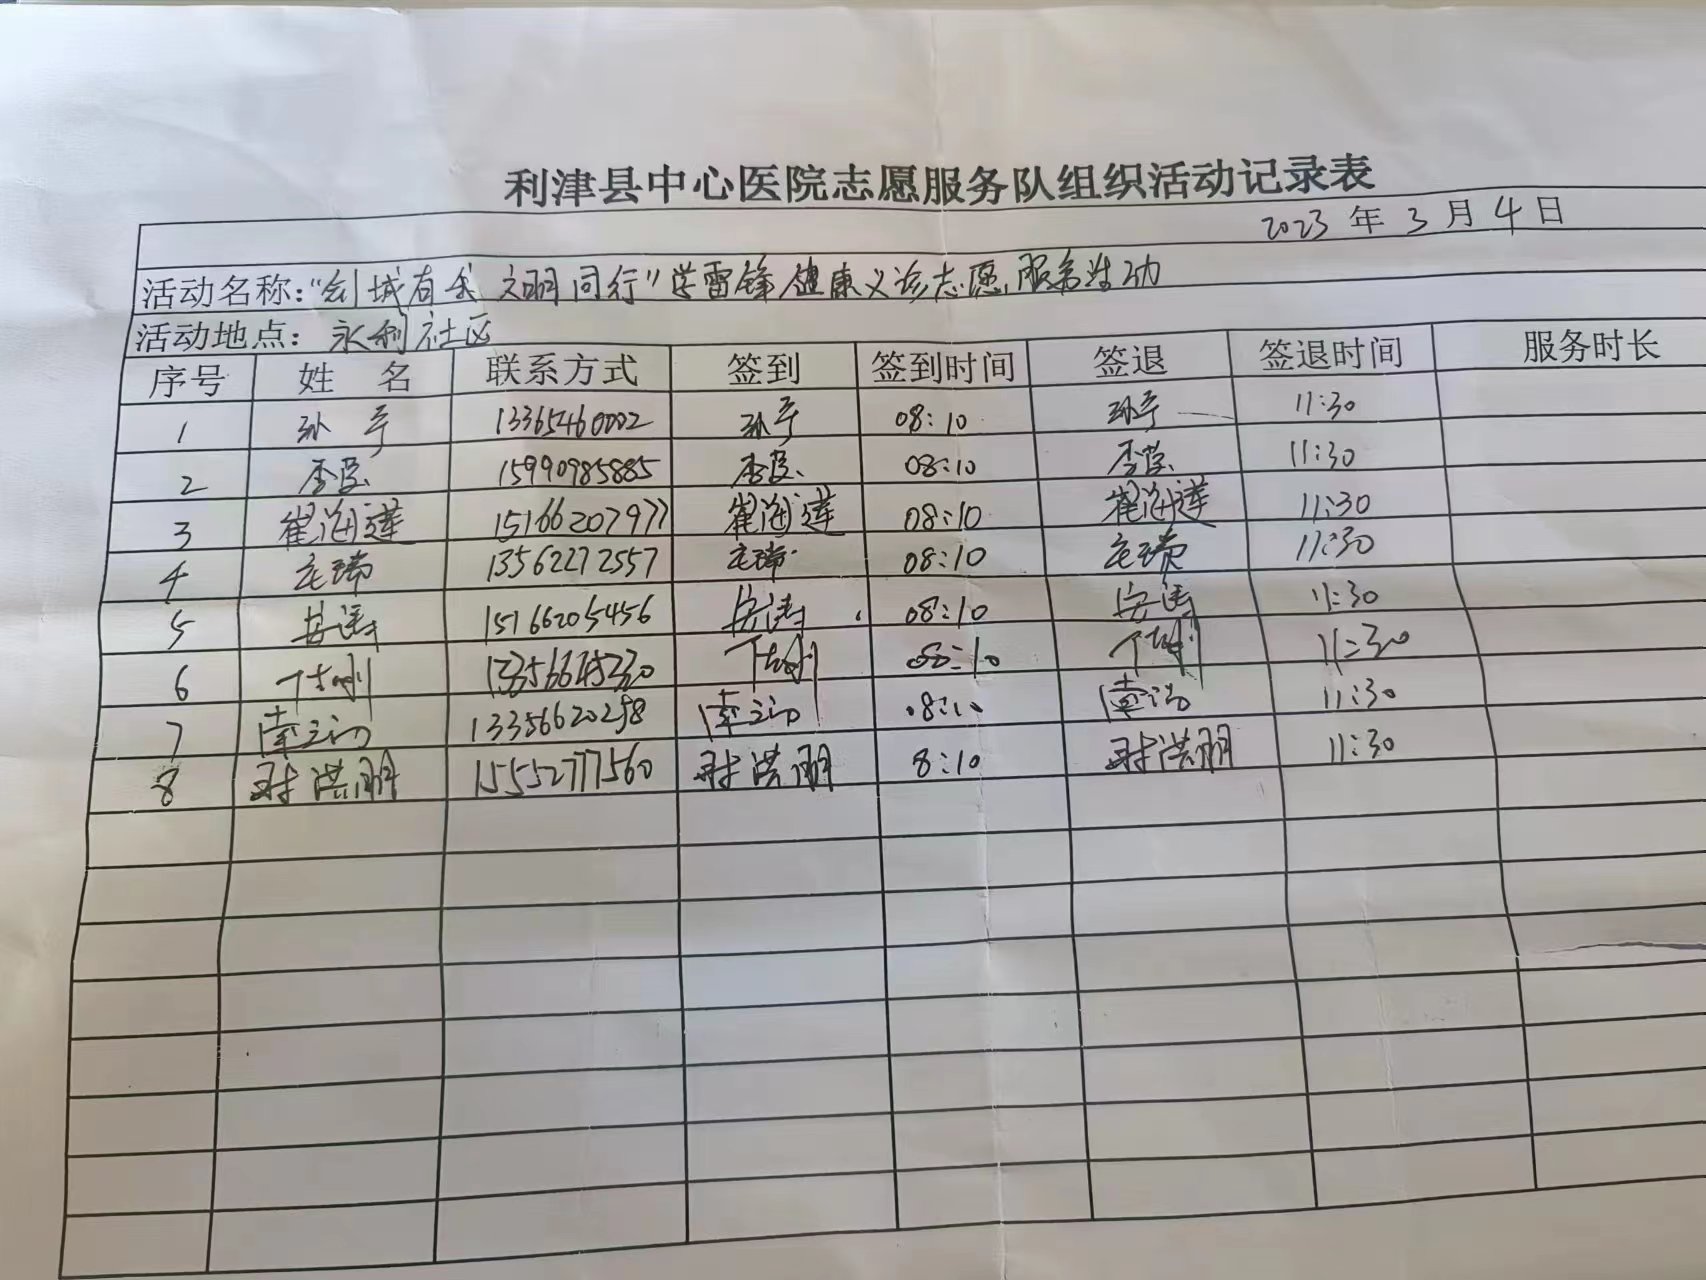 利津县中心医院志愿服务队组织活动记录表
2023 年 3 月 4 日
活动名称:“创城有我 文明同行”学雷锋健康义诊志愿服务活动
活动地点: 永利社区
序号 姓 名 联系方式 签到 签到时间 签退 签退时间 服务时长
1 孙 13365460002 孙 08:10 孙 11:30
2 李 15990985885 李 08:10 李 11:30
3 崔海莲 15166207977 崔海莲 08:10 崔海莲 11:30
4 13562272557 08:10 11:30
5 安涛 15166205456 安涛 08:10 安涛 11:30
6 08:10 11:30
7 13356620258 08:10 11:30
8 洪明 15552777560 洪明 8:10 洪明 11:30